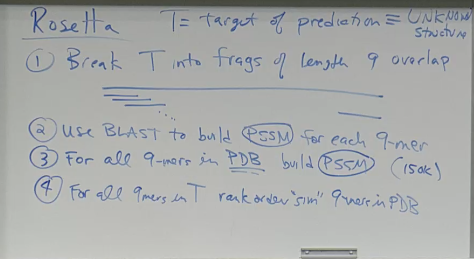 Rosetta T = target of prediction ≡ UNKNOWN
STRUCTURE
① Break T into frags of length 9 overlap
② Use BLAST to build PSSM for each 9-mer
③ For all 9-mers in PDB build PSSM (150k)
④ For all 9mers in T rank order "sim" 9-mers in PDB